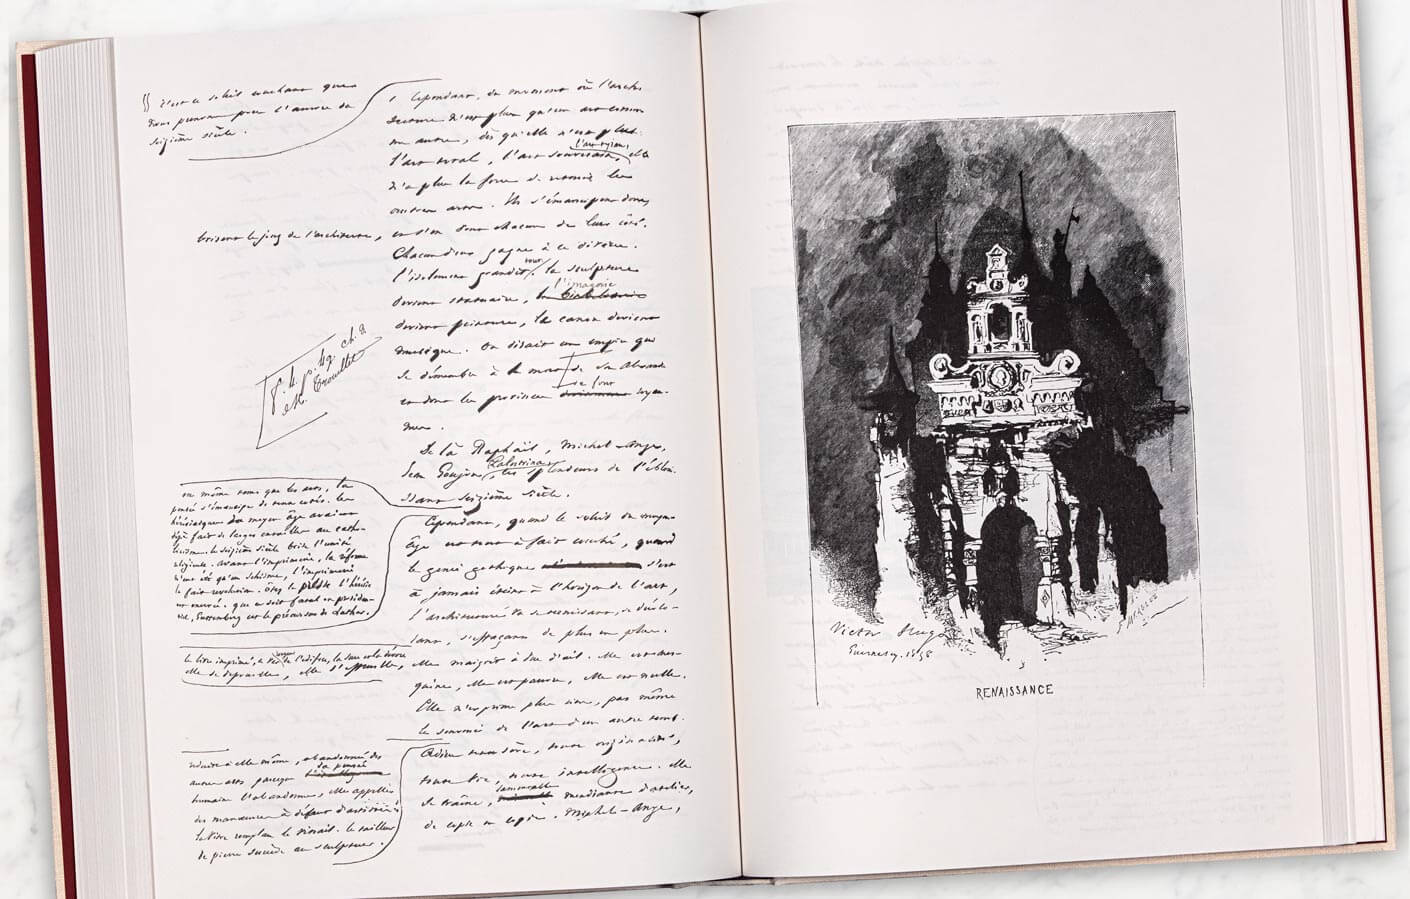 C'est ce soleil couchant que
nous prenons pour l'aurore du
seizième siècle.
Cependant, du moment où l'archi-
tecture n'est plus qu'un art comme
un autre, dès qu'elle n'est plus
l'art tyran,
l'art total, l'art souverain, elle
n'a plus la force de retenir les
autres arts. Ils s'émancipent donc,
brisent le joug de l'architecte,
et s'en vont chacun de leur côté.
Chacun d'eux gagne à ce divorce.
tout
l'isolement grandit. la sculpture
l'imagerie
devient statuaire,
devient peinture, le canon devient
musique. On dirait un empire qui
se démembre à la mort de son Alexandre
se font
et dont les provinces royau-
mes.
ch. 2
De là Raphaël, Michel-Ange,
Palestrina
Jean Goujon, ces splendeurs de l'éblouis-
sant seizième siècle.
en même temps que les arts, la
pensée s'émancipe de tous côtés. les
hérésiarques du moyen âge avaient
déjà fait de larges entailles au catho-
licisme. le seizième siècle brise l'unité
religieuse. avant l'imprimerie, la réforme
n'eût été qu'un schisme, l'imprimerie
la fait révolution. ôtez la presse, l'hérésie
est énervée. que ce soit fatal ou providen-
tiel, Gutenberg est le précurseur de Luther.
Cependant, quand le soleil du moyen-
âge est tout à fait couché, quand
le génie gothique s'est
à jamais éteint à l'horizon de l'art,
l'architecture va se ternissant, se décolo-
rant, s'effaçant de plus en plus.
le livre imprimé, ce ver rongeur de l'édifice, la suce et la dévore.
elle se dépouille, elle s'effeuille, elle maigrit à vue d'œil. elle est mes-
quine, elle est pauvre, elle est nulle.
Elle n'exprime plus rien, pas même
le souvenir de l'art d'un autre temps.
réduite à elle-même, abandonnée des
la pensée
autres arts parce que
humaine l'abandonne, elle appelle
des manœuvres à défaut d'artistes.
la vitre remplace le vitrail. le tailleur
de pierre succède au sculpteur.
Adieu toute sève, toute originalité,
toute vie, toute intelligence. elle
lamentable
se traîne, mendiante d'atelier,
de copie en copie. Michel-Ange,
Victor Hugo
Guernesey. 1858
RENAISSANCE